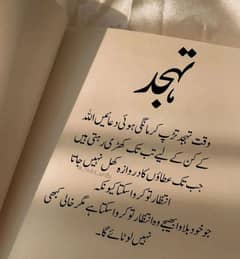 تہجد
وقت تہجد تڑپ کر مانگی ہوئی دعائیں اللہ
کے کن کے لیے تب تک کھڑی رہتی ہیں
جب تک عطاؤں کا دروازہ کھل نہیں جاتا
انتظار تو کروا سکتا کیونکہ
جو خود بلاوا بھیجے وہ انتظار تو کروا سکتا ہے مگر خالی کبھی
نہیں لوٹائے گا۔